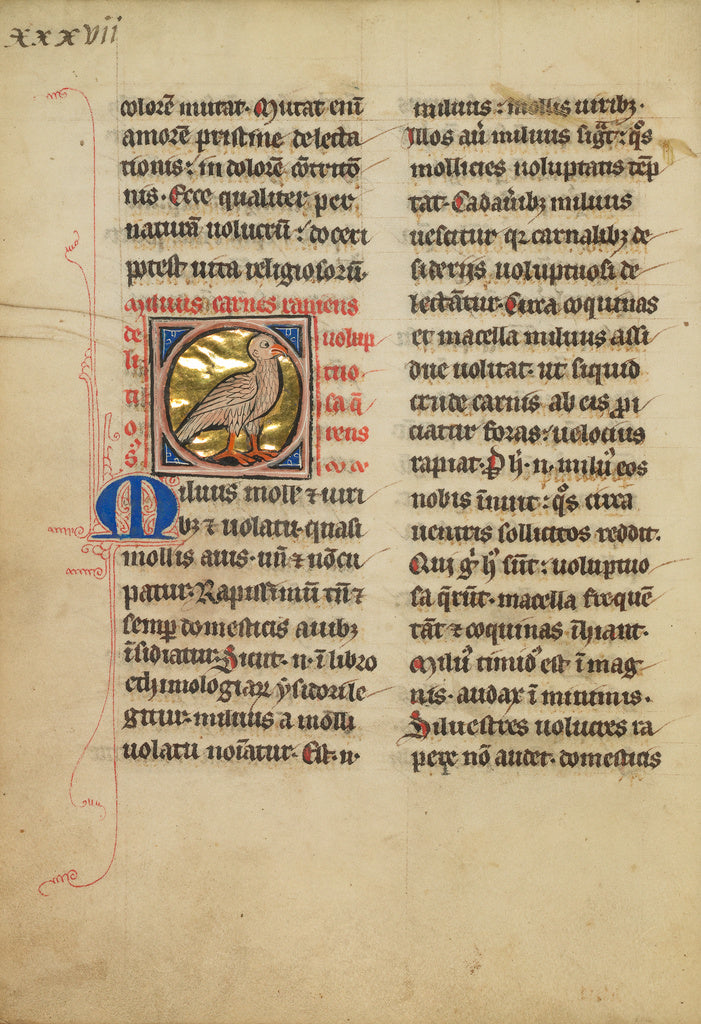 xxxvii
colorē mutat. Mutat eni
amorē pristine delecta
tionis: in dolorē cōtritō
nis. Ecce qualiter per
naturā uolucrū: doceri
potest uita religiosorū.
Miluus carnes rapiens
de uolup
li tuo
ti sa q̄
o rens
s
Miluus molł ⁊ uiri
bꝫ ⁊ uolatu quasi
mollis auis. un̄ ⁊ nūcu
patur. Rapissimū tn̄ ⁊
semꝑ domesticis auibꝫ
īsidiatur. Sicut. n. ī libro
ethimologiaꝝ ysidori le
gitur. miluus a molli
uolatu noīatur. Est. n.
miluus: mollis uiribꝫ.
Illos aū miluus sigat: qͦs
mollicies uoluptatis tēp
tat. Cadaūibꝫ miluus
uescitur qꝛ carnalibꝫ de
siderijs uoluptuosi de
lectātur. Circa coquinas
et macella miluus assi
due uolitat. ut siquid
crude carnis ab eis ꝓi
ciatur foras: uelocius
rapiat. P h̄. n. milu᷒ eos
nobis īnuit: qͦs circa
uentris sollicitos reddit.
Qui g̊ h᷒ sūt: uoluptuo
sa q̄rūt. macella freqūe
tāt ⁊ coquinas īhiant.
Milu᷒ timid᷒ est ī mag
nis. audax ī minimis.
Siluestres uolucres ra
pere nō audet. domesticis